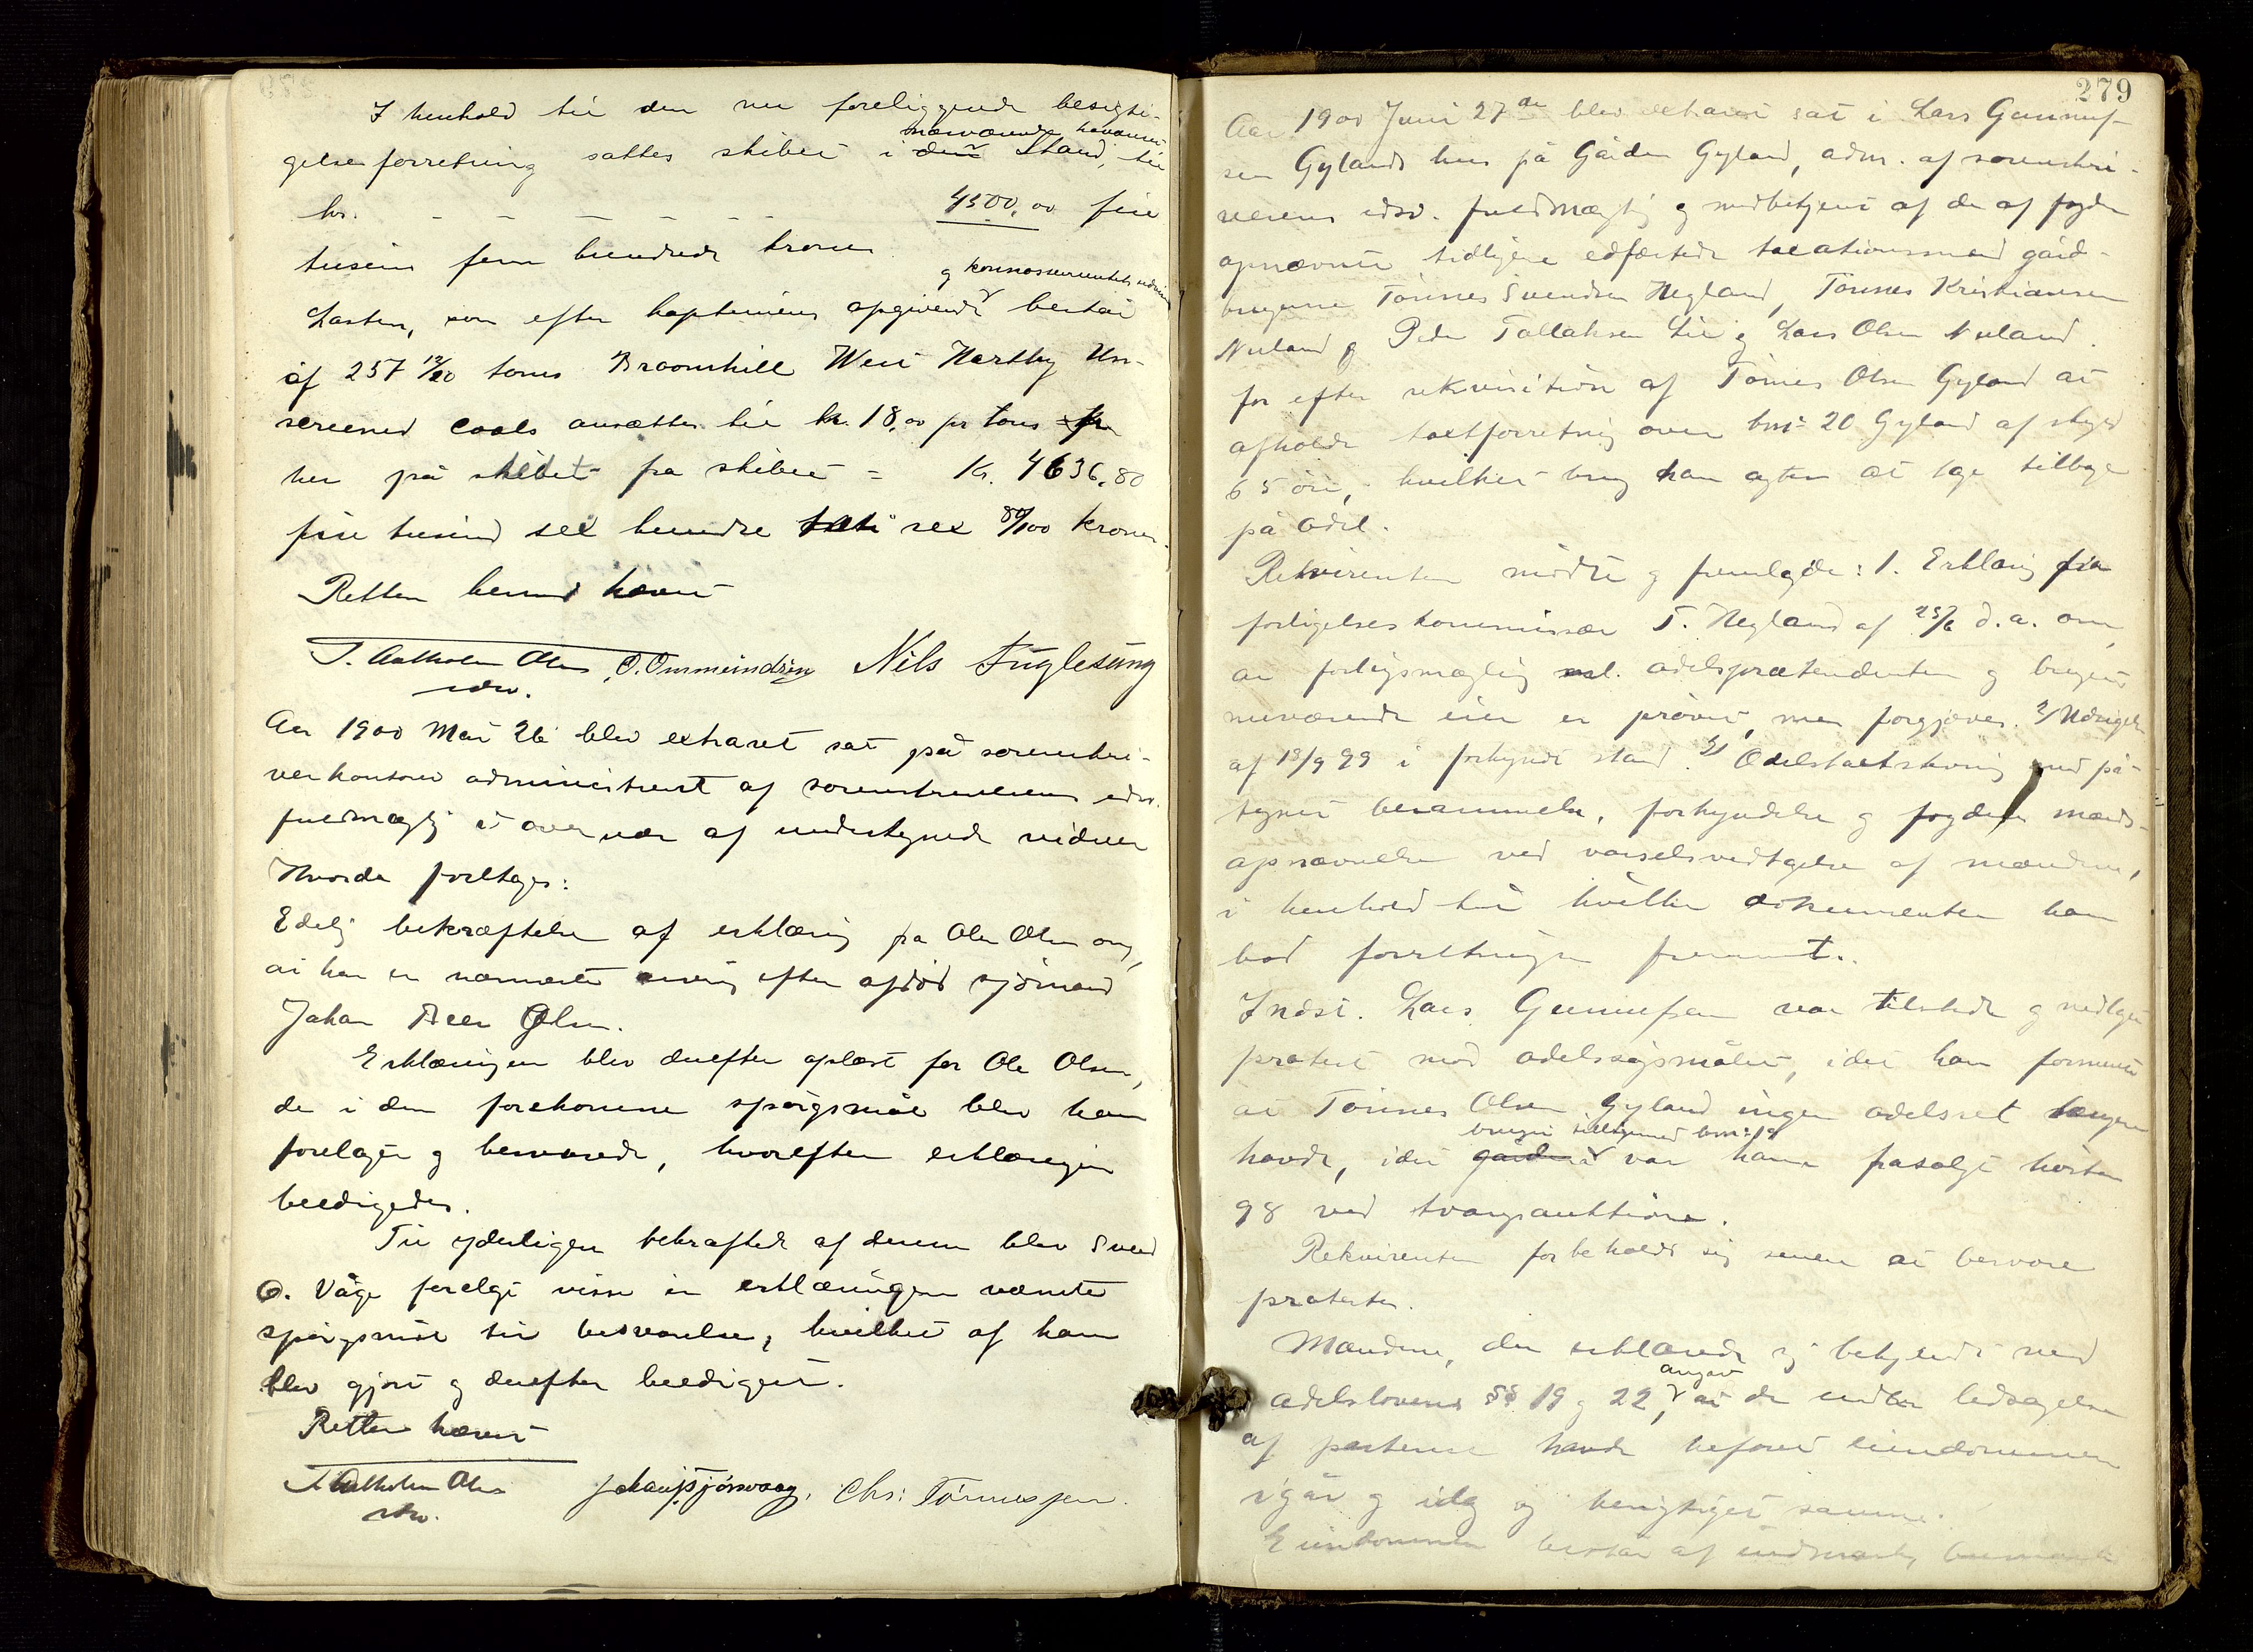 I henhold til den nu foreliggende besigti-
gelsesforretning sattes skibet i nærværende havarert Stand, til
kr. - - - - - - 4500,00 fire
tusind fem hundrede kroner
Lasten, som efter kapteinens opgivende og konnossementets udvisende består
af 257 12/20 tons Broomhill West Hartley Un-
screened coals ansættes til kr. 18,00 pr tons
her på skibet fra skibet = Kr. 4636,80
fire tusind sex hundre sex 80/100 kroner.
Retten hermed hævet
T. Aatholm Olsen O. Ommundsen Nils Fuglesang
edsv.
Aar 1900 Mai 26 blev extraret sat på sorenskri-
verkontoret administreret af sorenskriverens edsv.
fuldmægtig i overvær af undertegnede vidner
Hvorda foretoges:
Edelig bekræftelse af erklæring fra Ole Olsen om,
at han er nærmeste arving efter afdød sjömand
Johan Olsen.
Erklæringen blev derefter oplæst for Ole Olsen,
de i den forekomne spörgsmål blev ham
forelagte og besvarede, hvorefter erklæringen
beedigedes.
Til yderligere bekræftelse af denne blev Svend
O. Våge forelagt visse i erklæringen nævnte
spörgsmål til besvarelse, hvilket af ham
blev gjort og derefter beediget.
Retten hævet
T. Aatholm Olsen Johan Tjörsvaag. Chr: Tönnessen.
edsv.
279
Aar 1900 Juni 27de blev extraret sat i Lars Gunnuf-
sen Gylands hus på Gården Gyland, adm. af sorenskri-
verens edsv. fuldmægtig og medbetjent af de af fogden
opnævnte tidligere edfæstede taxationsmænd gård-
brugerne Tönnes Svendsen Hegland, Tönnes Kristiansen
Nuland og Peder Tallaksen Lie og Lars Olsen Nuland.
for efter rekvisition af Tönnes Olsen Gyland at
afholde taxtforretning over bnr 20 Gyland af skyld
65 öre, hvilket brug han agter at tage tilbage
på Odel.
Rekvirenten mödte og fremlagde: 1. Erklæring fra
forligelseskommissær T. Hegland af 25/6 d.a. om,
at forligsmægling ml. odelsprætendenten og brugets
nuværende eier er prövet, men forgjæves. 2/ Udsigelse
af 13/9 99 i forkyndt stand. 3/ Odelstaxtstevning med på-
tegnet berammelse, forkyndelse og fogdens mænds-
opnævnelse ved varselsvedtagelse af mændene,
i henhold til hvilke dokumenter han
bad forretningen fremmet.
Indst. Lars Gunnufsen var tilstede og nedlagde
protest mod odelssøgsmålet, idet han formente
at Tönnes Olsen Gyland ingen odelsret længere
havde, idet bruget tilligemed bnr 19 var ham frasolgt hösten
98 ved tvangsauktion.
Rekvirenten forbeholdt sig senere at besvare
protesten.
Mændene, der erklærede sig bekjendt med
odelslovens §§ 19 og 22, angav at de under ledsagelse
af parterne havde befaret eiendommen
igår og idag og besigtiget samme.
Eiendommen består af indmark,